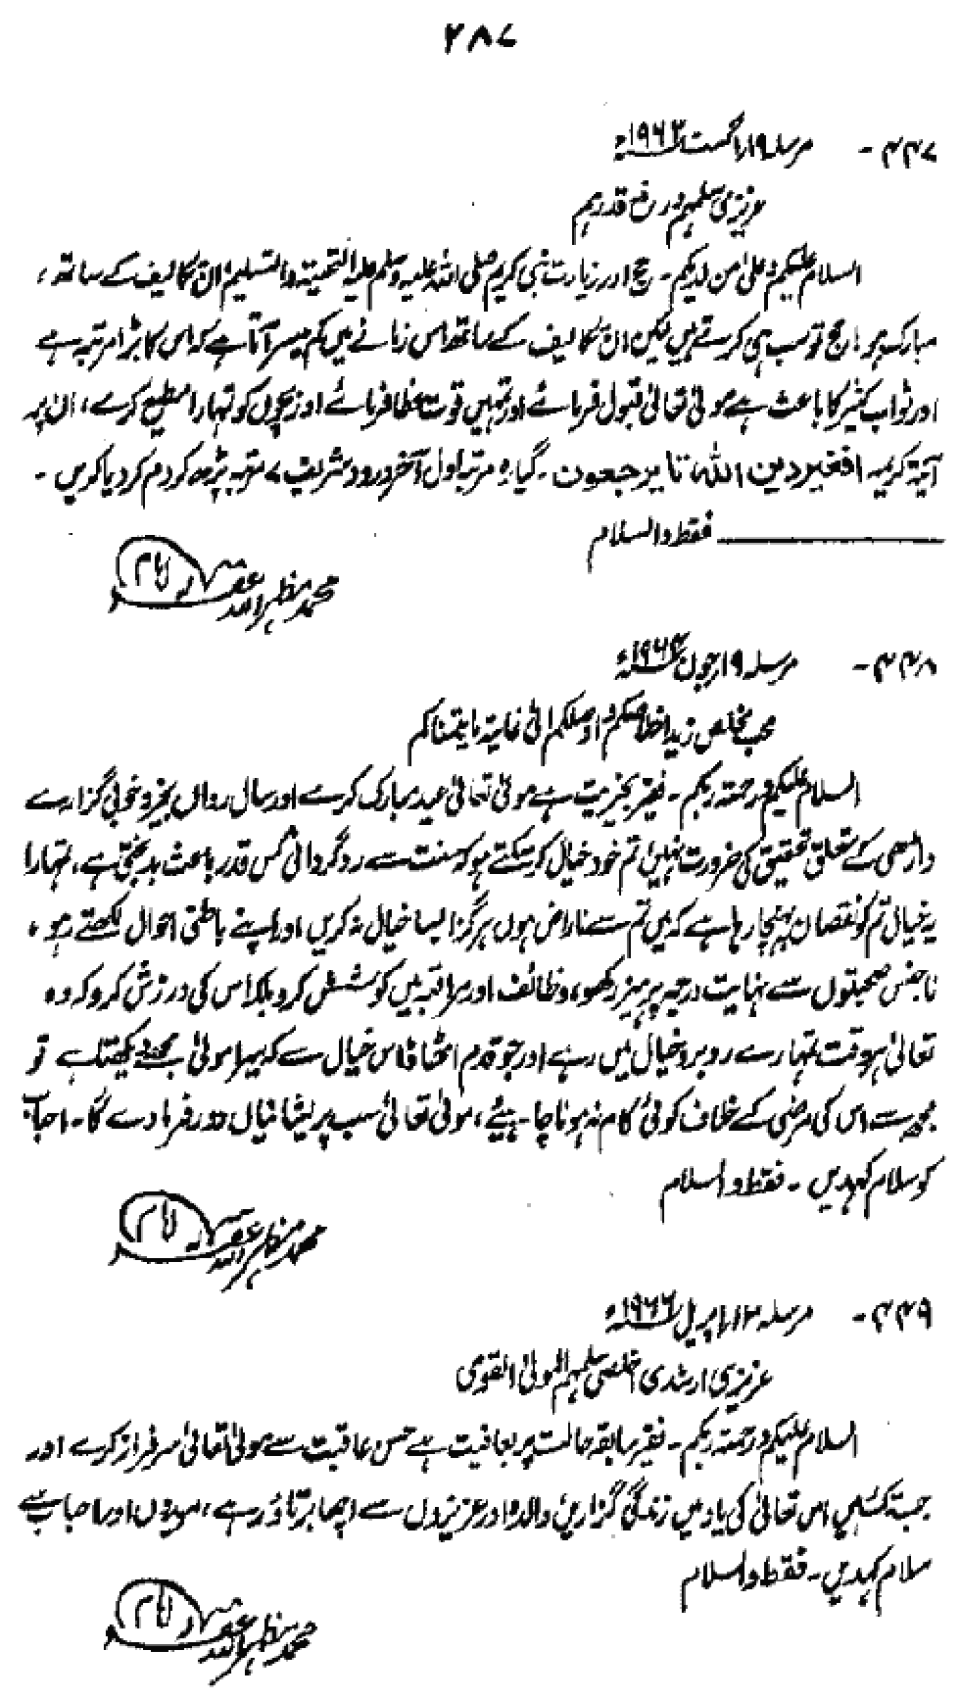 ۲۸۷
۴۴۷- مرسلہ ۱۹/اگست ۱۹۶۳ء
عزیزی سلمہم ورفع قدرہم
السلام علیکم وعلیٰ من لدیکم۔ حج اور زیارت نبی کریم صلی اللہ علیہ وسلم علیہ التحیتہ والتسلیم ان تکالیف کے ساتھ،
مبارک ہو، حج تو سب ہی کرتے ہیں لیکن ان تکالیف کے ساتھ اس زمانے میں کم میسر آتا ہے کہ اس کا بڑا مرتبہ ہے
اور ثواب کثیر کا باعث ہے مولیٰ تعالیٰ قبول فرمائے اور تمہیں قوت عطا فرمائے اور بچوں کو تمہارا مطیع کرے، ان پر
آیتہ کریمہ افغیر دین اللہ تا یرجعون۔ گیارہ مرتبہ اول آخر درود شریف ۷ مرتبہ پڑھ کر دم کر دیا کریں۔
فقط والسلام
محمد مظہر اللہ غفرلہ
۴۴۸- مرسلہ ۱۹/جون ۱۹۶۴ء
محب مخلص زید اخلاصکم و اوصلکم الیٰ غایتہ مایتمناکم
السلام علیکم ورحمتہ ربکم۔ فقیر بخیریت ہے مولیٰ تعالیٰ عید مبارک کرے اور سال رواں بخیر و خوبی گزارے
داڑھی کے متعلق تحقیق کی ضرورت نہیں تم خود خیال کر سکتے ہو کہ سنت سے روگردانی کس قدر باعث بدبختی ہے، تمہارا
یہ خیال تم کو نقصان پہنچا رہا ہے کہ میں تم سے ناراض ہوں ہرگز ایسا خیال نہ کریں اور اپنے باطنی احوال لکھتے رہو،
ناجنس صحبتوں سے نہایت درجہ پرہیز رکھو، وظائف اور مراقبہ میں کوشش کرو بلکہ اس کی ورزش کرو کہ وہ
تعالیٰ ہر وقت تمہارے روبرو خیال میں رہے اور جو قدم اٹھا تا اس خیال سے کہ میرا مولیٰ مجھے دیکھتا ہے تو
مجھ سے اس کی مرضی کے خلاف کوئی کام نہ ہونا چاہیئے، مولیٰ تعالیٰ سب پریشانیاں دور فرما دے گا۔ احباب
کو سلام کہدیں۔ فقط والسلام
محمد مظہر اللہ غفرلہ
۴۴۹- مرسلہ ۱۲/اپریل ۱۹۶۶ء
عزیزی ارشدی اخلصی سلمہم المولیٰ القوی
السلام علیکم ورحمتہ ربکم۔ فقیر سابقہ حالت پر بعافیت ہے حسن عاقبت سے مولیٰ تعالیٰ سرفراز کرے اور
جب تک جئیں اس تعالیٰ کی یاد میں زندگی گزاریں والدہ اور عزیزوں سے اچھا برتاؤ رہے، مریدوں اور احباب سے
سلام کہدیں۔ فقط والسلام
محمد مظہر اللہ غفرلہ